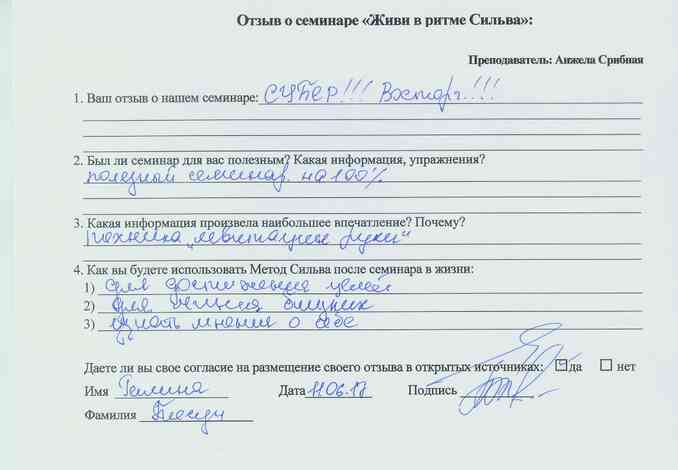 Отзыв о семинаре «Живи в ритме Сильва»:
Преподаватель: Анжела Срибная
1. Ваш отзыв о нашем семинаре: СУПЕР!!! Восторг!!!
2. Был ли семинар для вас полезным? Какая информация, упражнения?
полезный семинар на 100%
3. Какая информация произвела наибольшее впечатление? Почему?
техника „левитация руки"
4. Как вы будете использовать Метод Сильва после семинара в жизни:
1) для достижения целей
2) для лечения близких
3) узнать мнения о себе
Даете ли вы свое согласие на размещение своего отзыва в открытых источниках: да нет
Имя Галина Дата 11.06.17 Подпись
Фамилия